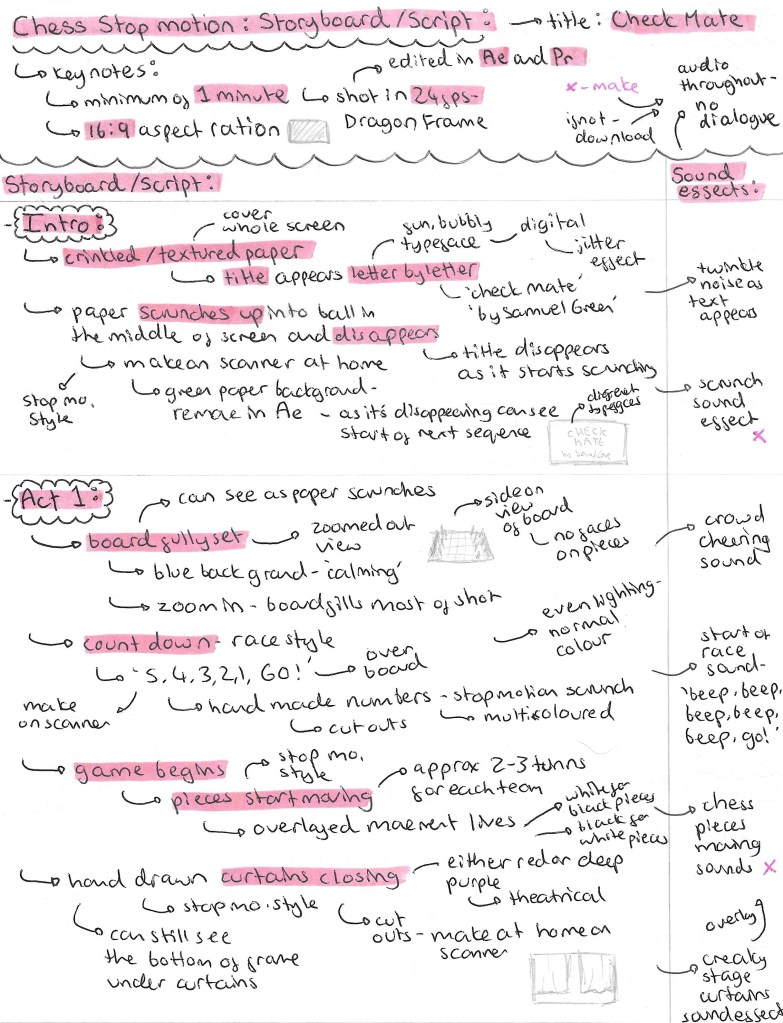 Chess Stop motion: Storyboard/Script: → title: Check Mate
key notes:
minimum of 1 minute
16:9 aspect ration
edited in Ae and Pr
shot in 24fps-
Dragon Frame
x - make
if not -
download
audio
throughout -
no
dialogue
Storyboard/script:
Sound
effects:
- Intro:
crinkled/textured paper
cover
whole screen
title appears letter by letter
fun, bubbly
typeface
digital
jitter
effect
'check mate'
'by Samuel Green'
twinkle
noise as
text
appears
paper scrunches up into ball in
the middle of screen and disappears
make on scanner at home
stop mo.
style
green paper background -
remove in Ae
title disappears
as it starts scrunching
- as it's disappearing can see
start of next seqence
different
typefaces
CHECK
MATE
by Samuel Green
scrunch
sound
effect
x
- Act 1:
can see as paper scrunches
board fully set
zoomed out
view
side on
view
of board
no faces
on pieces
crowd
cheering
sound
blue background - 'calming'
zoom in - board fills most of shot
even lighting -
normal
colour
count down - race style
'5, 4, 3, 2, 1, GO!'
over
board
make
on scanner
hand made numbers - stop motion scrunch
cut outs
multicoloured
start of
race
sound -
'beep, beep,
beep, beep,
beep, go!'
game begins
stop mo.
style
pieces start moving
approx 2-3 turns
for each team
overlayed movement lines
white for
black pieces
black for
white pieces
chess
pieces
moving
sounds x
hand drawn curtains closing
either red or deep
purple
theatrical
stop mo. style
cut
outs - make at home on
scanner
can still see
the bottom of frame
under curtains
overlay
creaky
stage
curtains
sound effect